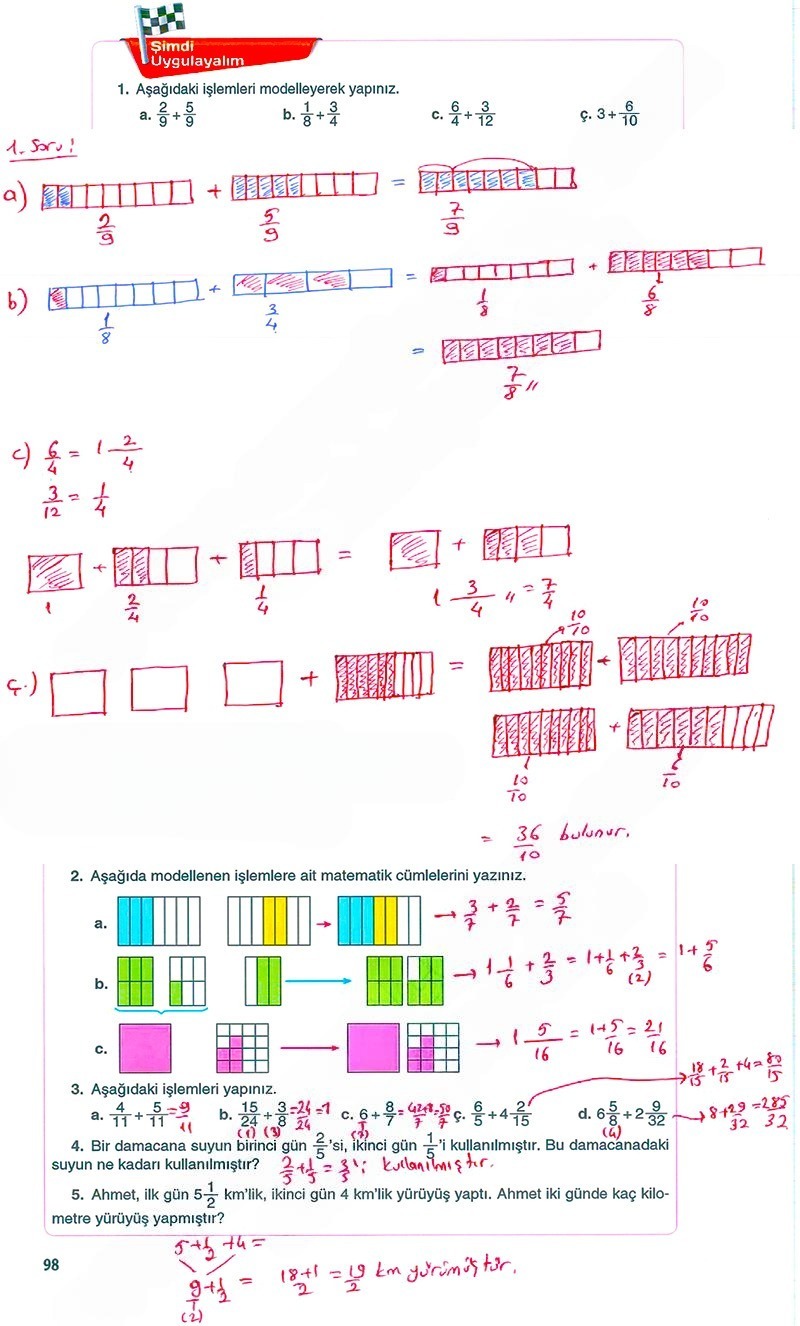 Şimdi
Uygulayalım
1. Aşağıdaki işlemleri modelleyerek yapınız.
a. 2/9 + 5/9 b. 1/8 + 3/4 c. 6/4 + 3/12 ç. 3 + 6/10
1. Soru:
a) + =
2/9 5/9 7/9
b) + = +
1/8 3/4 1/8 6/8
=
7/8 "
c) 6/4 = 1 2/4
3/12 = 1/4
+ + = +
1 2/4 1/4 1 3/4 " = 7/4
10/10 10/10
ç.) + = +
+
10/10 6/10
= 36/10 bulunur.
2. Aşağıda modellenen işlemlere ait matematik cümlelerini yazınız.
a. → → 3/7 + 2/7 = 5/7
b. → → 1 1/6 + 2/3 = 1 + 1/6 + 2/3 = 1 + 5/6
(2)
c. → → 1 5/16 = 1+5/16 = 21/16
3. Aşağıdaki işlemleri yapınız. → 18/15 + 2/15 + 4 = 80/15
a. 4/11 + 5/11 = 9/11 b. 15/24 + 3/8 = 24/24 = 1 c. 6 + 8/7 = 42+8/7 = 50/7 ç. 6/5 + 4 2/15 d. 6 5/8 + 2 9/32 → 8 + 29/32 = 285/32
(1) (3) (7) (4)
4. Bir damacana suyun birinci gün 2/5'si, ikinci gün 1/5'i kullanılmıştır. Bu damacanadaki
suyun ne kadarı kullanılmıştır? 2/5 + 1/5 = 3/5'i kullanılmıştır.
5. Ahmet, ilk gün 5 1/2 km'lik, ikinci gün 4 km'lik yürüyüş yaptı. Ahmet iki günde kaç kilo-
metre yürüyüş yapmıştır?
98
5 + 1/2 + 4 =
9 + 1/2 = 18+1/2 = 19/2 km yürümüştür.
(2)